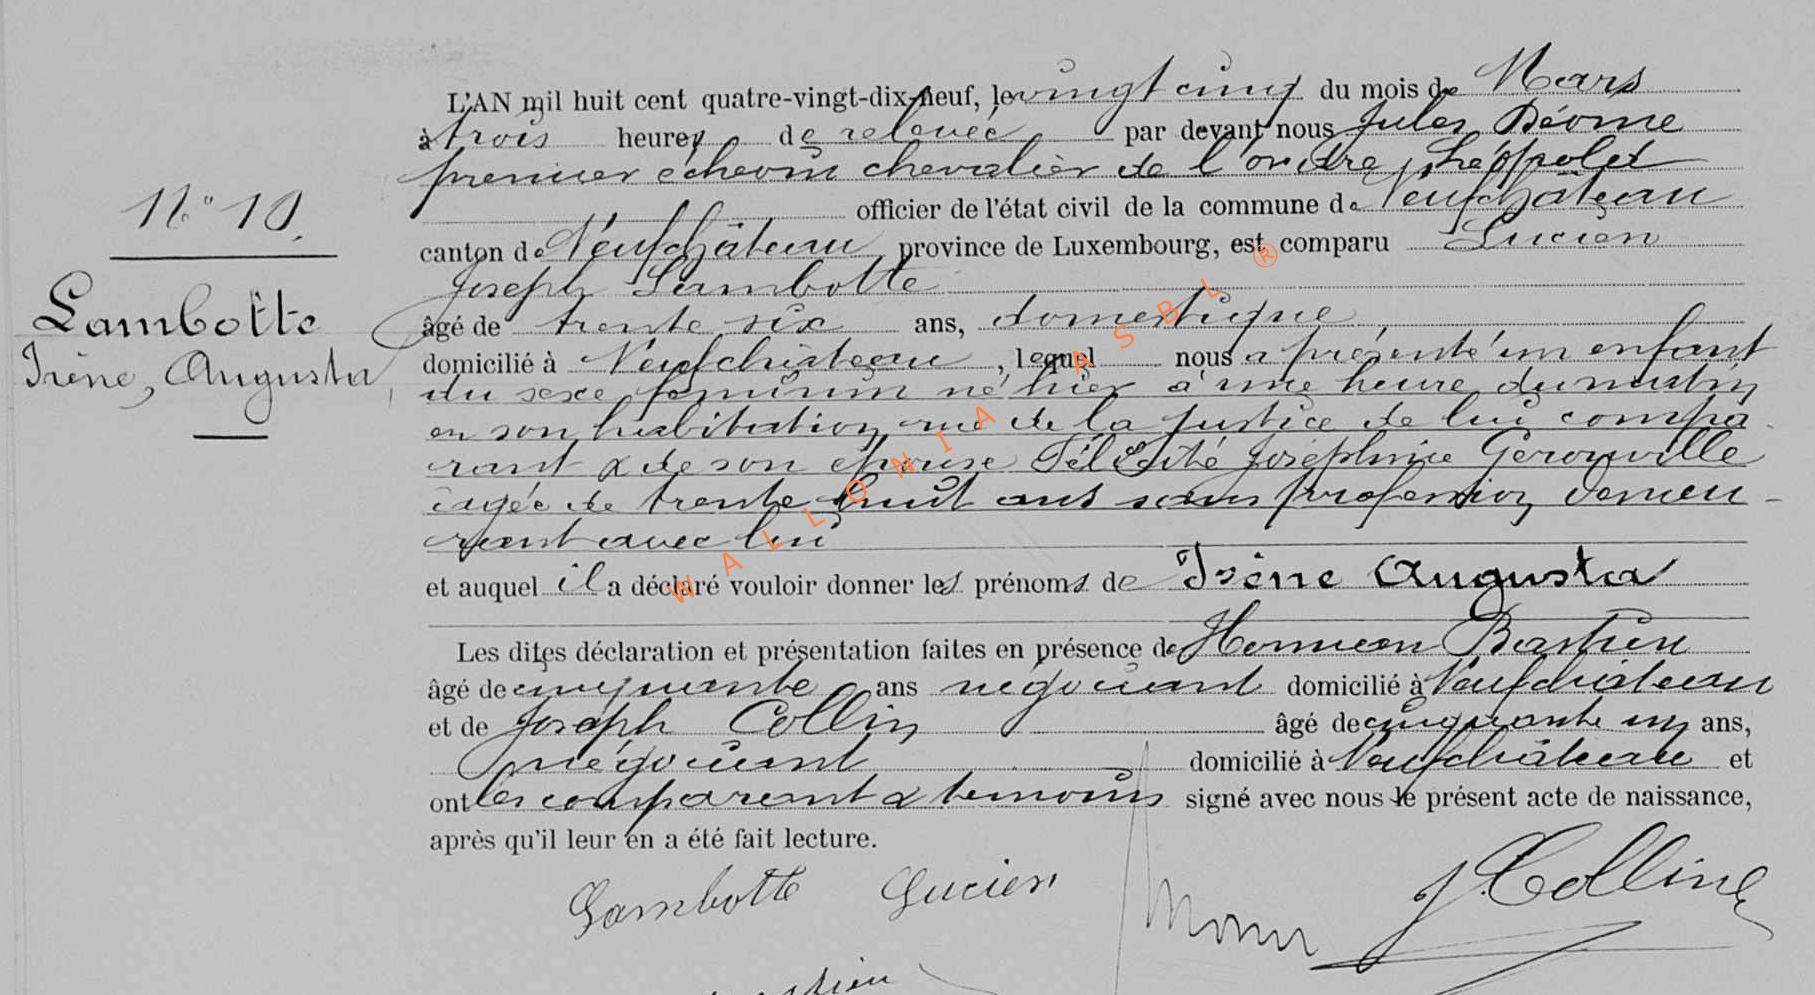 L'AN mil huit cent quatre-vingt-dix-neuf, le vingt cinq du mois de Mars
à trois heures de relevée par devant nous Jules Déome
premier échevin chevalier de l'ordre Léopold
officier de l'état civil de la commune de Neufchâteau
N° 10.
canton de Neufchâteau province de Luxembourg, est comparu Lucien
Joseph Lambotte
Lambotte
âgé de trente six ans, domestique
Irène, Augusta
domicilié à Neufchâteau, lequel nous a présenté un enfant
du sexe féminin né hier à une heure du matin
en son habitation rue de la Justice de lui compa
rant & de son épouse Félicité Joséphine Gerouville
agée de trente huit ans sans profession demeu-
rant avec lui
et auquel il a déclaré vouloir donner les prénoms de Irène Augusta
Les dites déclaration et présentation faites en présence de Herman Bastien
âgé de cinquante ans négociant domicilié à Neufchâteau
et de Joseph Collin âgé de cinquante un ans,
négociant domicilié à Neufchâteau et
ont les comparant & temoins signé avec nous le présent acte de naissance,
après qu'il leur en a été fait lecture.
Lambotte Lucien
J Colline
WALLONIA ASBL ®